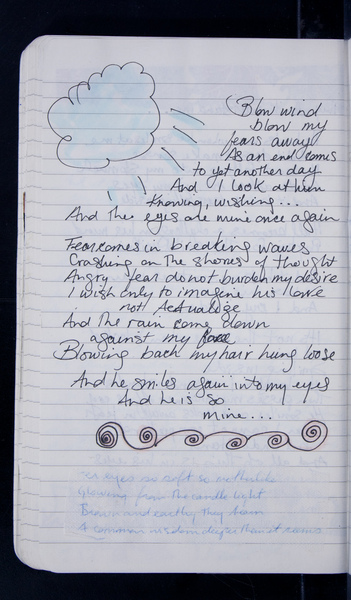 Blow wind
blow my
fears away
As an end comes
to yet another day
And I look at him
Knowing, wishing...
And the eyes are mine once again
Fear comes in breaking waves
Crashing on the shores of thought
Angry fear do not burden my desire
I wish only to imagine his love
not Actualize
And the rain came down
against my face
Blowing back my hair hung loose
And he smiles again into my eyes
And he is so
mine...
eyes so soft so
Glowing from the candle light
Brown and earthy they beam
A common wisdom deeper than it seems